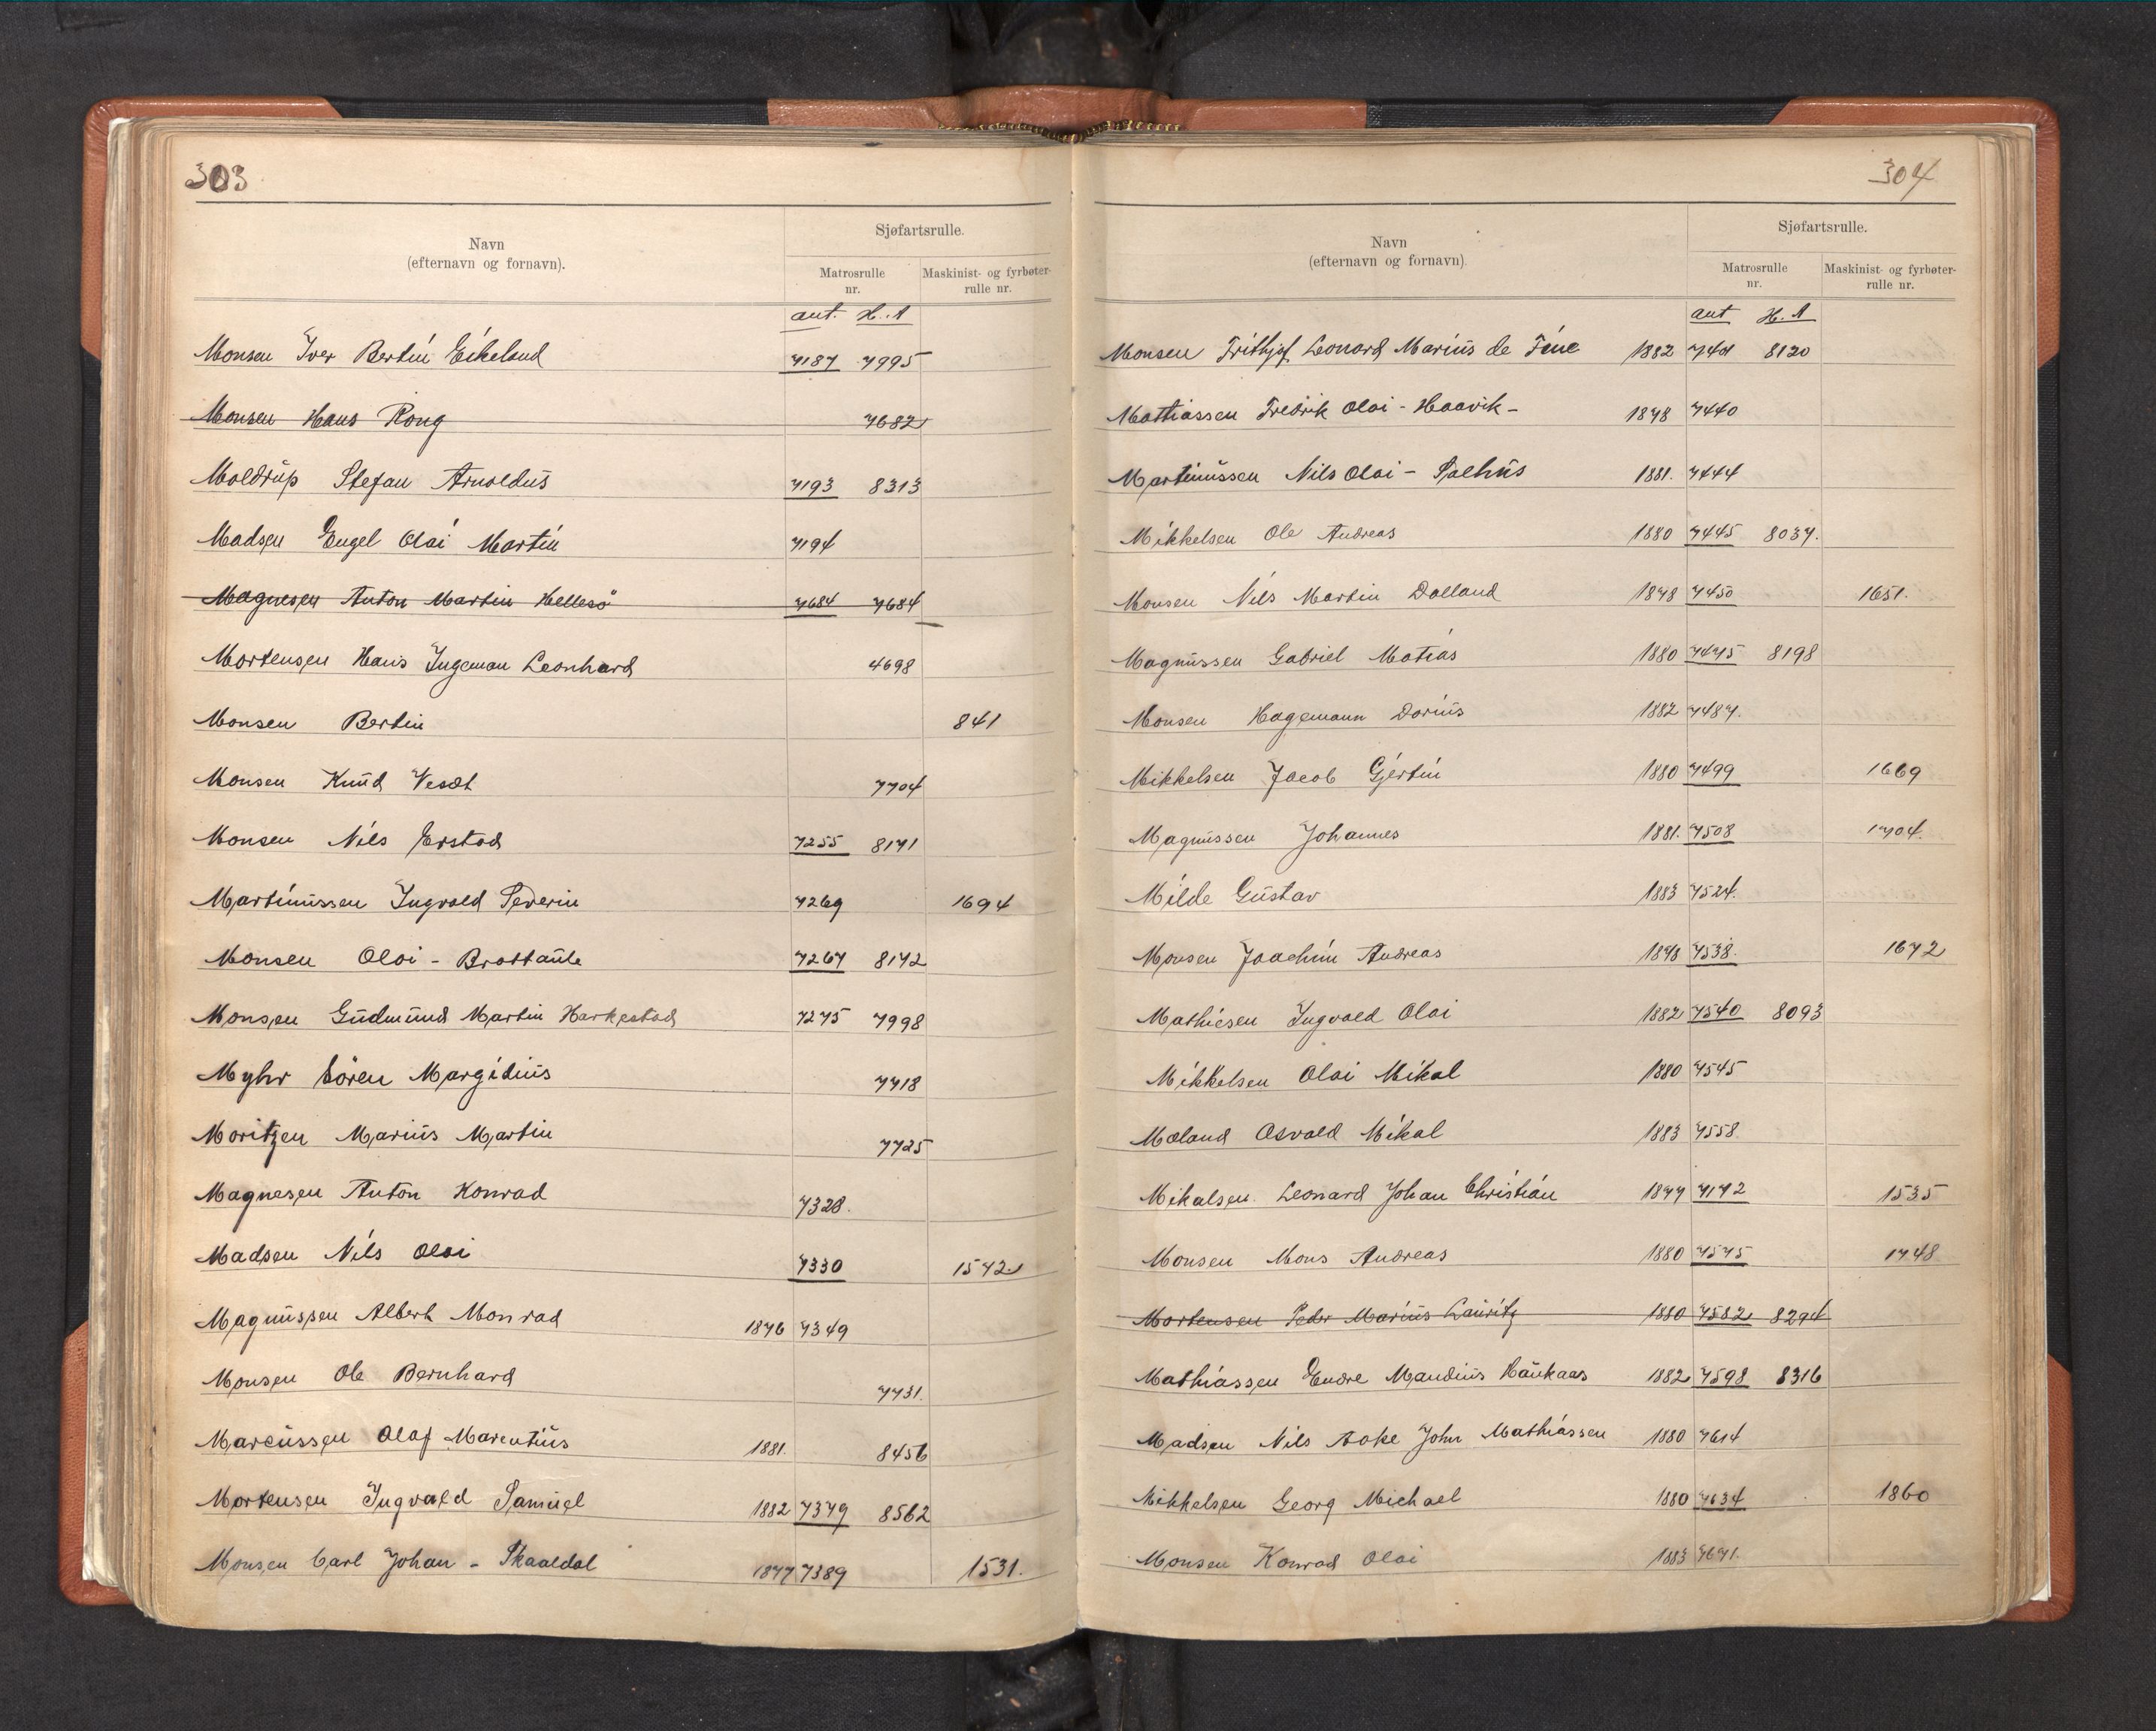 303
Navn
(efternavn og fornavn).
Sjøfartsrulle.
Matrosrulle
nr.
Maskinist- og fyrbøter-
rulle nr.
ant. H.A
Monsen Iver Bertin Eikeland 7187 7995
Monsen Hans Rong 7682
Moldrup Stefan Arnoldus 7193 8313
Madsen Engel Olai Martin 7194
Magnesen Anton Martin Hellesö 7684 7684
Mortensen Hans Ingeman Leonhard 4698
Monsen Bertin 841
Monsen Knud Vesæt 7704
Monsen Nils Erstad 7255 8171
Martinussen Ingvald Severin 7269 1694
Monsen Olai - Brattaule 7267 8172
Monsen Gudmund Martin Harkestad 7275 7998
Myhr Sören Margidius 7718
Moritzen Marius Martin 7725
Magnesen Anton Konrad 7328.
Madsen Nils Olai 7330 1572
Magnussen Albert Monrad 1876 7349
Monsen Ole Bernhard 7731.
Marcussen Olaf Marentius 1881. 8456
Mortensen Ingvald Samuel 1882 7379 8562
Monsen Carl Johan - Skaaldal 1877 7389 1531.
304
Navn
(efternavn og fornavn)
Sjøfartsrulle.
Matrosrulle
nr.
Maskinist- og fyrbøter-
rulle nr.
ant H.A
Monsen Frithjof Leonard Marius de Fine 1882 8120
Mathiassen Fredrik Olai - Haavik - 1878 7440
Martinussen Nils Olai - Salhus 1881. 7444
Mikkelsen Ole Andreas 1880 7445 8037.
Monsen Nils Martin Dalland 1878 7450 1651.
Magnussen Gabriel Matias 1880 7475 8198
Monsen Hagemann Dorius 1882 7487.
Mikkelsen Jacob Gjertin 1880 7499 1669
Magnussen Johannes 1881. 7508 1704.
Milde Gustav 1883 7524.
Monsen Joachim Andreas 1878 7538. 1672
Mathiesen Ingvald Olai 1882 7540 8093
Mikkelsen Olai Mikal 1880 7545
Mæland Osvald Mikal 1883 7558.
Mikalsen Leonard Johan Christian 1877 7172 1535
Monsen Mons Andreas 1880 7575 1748
Mortensen Peder Marius Lauritz 1880 7582 8294
Mathiassen Endre Mandius Haukaas 1882 7598 8316
Madsen Nils Aake John Mathiassen 1880 7614
Mikkelsen Georg Michael 1880 7634 1860
Monsen Konrad Olai 1883 7671.